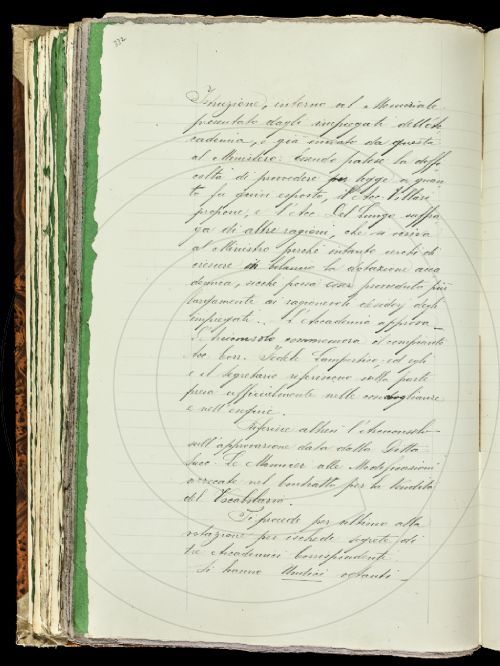 332
Istruzione, intorno al Memoriale
presentato dagli impiegati dell'Ac
cademia, e già inviato da questa
al Ministero. Essendo palese la diffi
coltà di provvedere per legge a quan
to fu quivi esposto, l'Acc. Villari
propone, e l'Acc. Del Lungo suffra
ga di altre ragioni, che si scriva
al Ministro perchè intanto cerchi di
crescere in bilancio la dotazione acca
demica, sicchè possa esser provveduto più
largamente ai ragionevoli desiderj degli
impiegati. L'Accademia approva.
L'Arciconsolo commemora il compianto
Acc. Corr. Fedele Lampertico, ed egli
e il segretario riferiscono sulla parte
presa ufficialmente nelle condoglianze
e nell'esequie.
Riferisce altresì l'Arciconsolo
sull'approvazione data dalla Ditta
Succ. Le Monnier alle Modificazioni
arrecate nel Contratto per la vendita
del Vocabolario.
Si procede per ultimo alla
votazione per ischede segrete di
tre Accademici Corrispondenti.
Si hanno Undici votanti